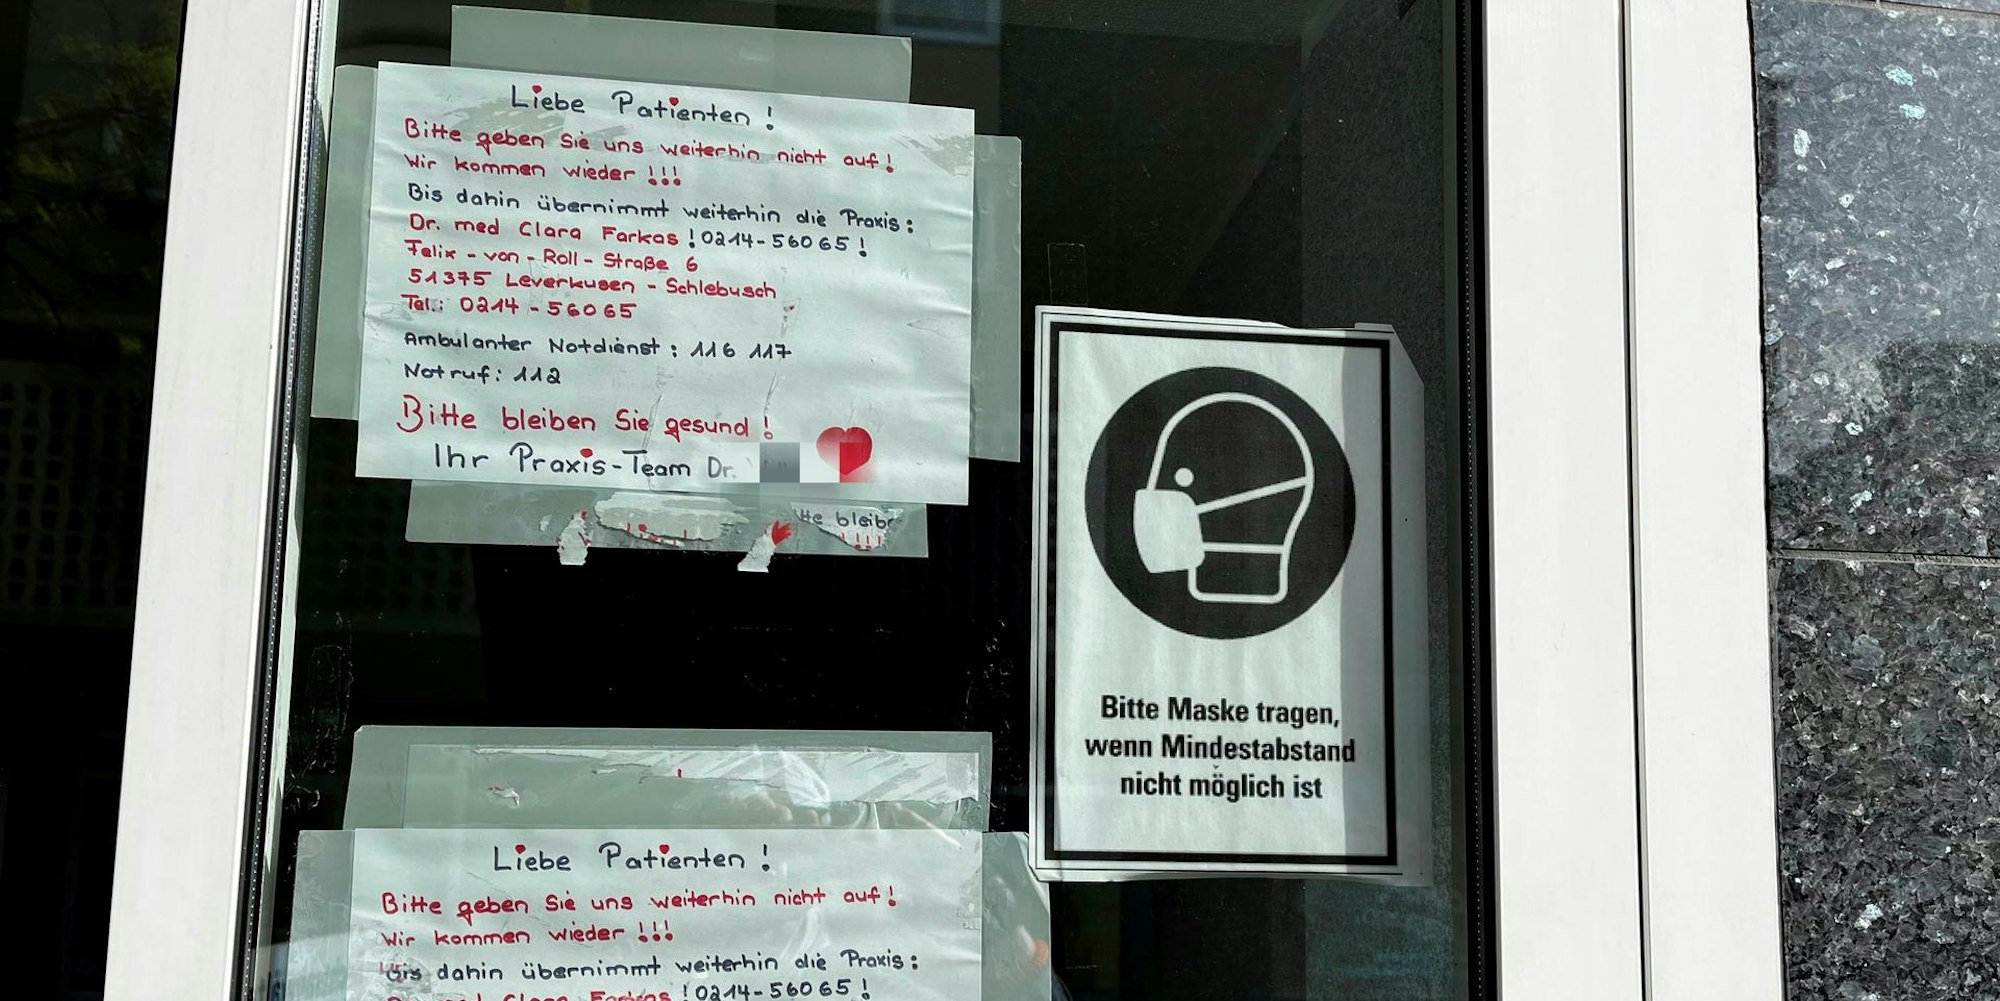 Liebe Patienten!
Bitte geben Sie uns weiterhin nicht auf!
Wir kommen wieder!!!
Bis dahin übernimmt weiterhin die Praxis:
Dr. med Clara Farkas! 0214-56065!
Felix-von-Roll-Straße 6
51375 Leverkusen-Schlebusch
Tel.: 0214-56065
Ambulanter Notdienst: 116 117
Notruf: 112
Bitte bleiben Sie gesund!
Ihr Praxis-Team Dr.
tte bleibe
!!!
Bitte Maske tragen,
wenn Mindestabstand
nicht möglich ist
Liebe Patienten!
Bitte geben Sie uns weiterhin nicht auf!
Wir kommen wieder!!!
Bis dahin übernimmt weiterhin die Praxis:
med Clara Farkas! 0214-56065!